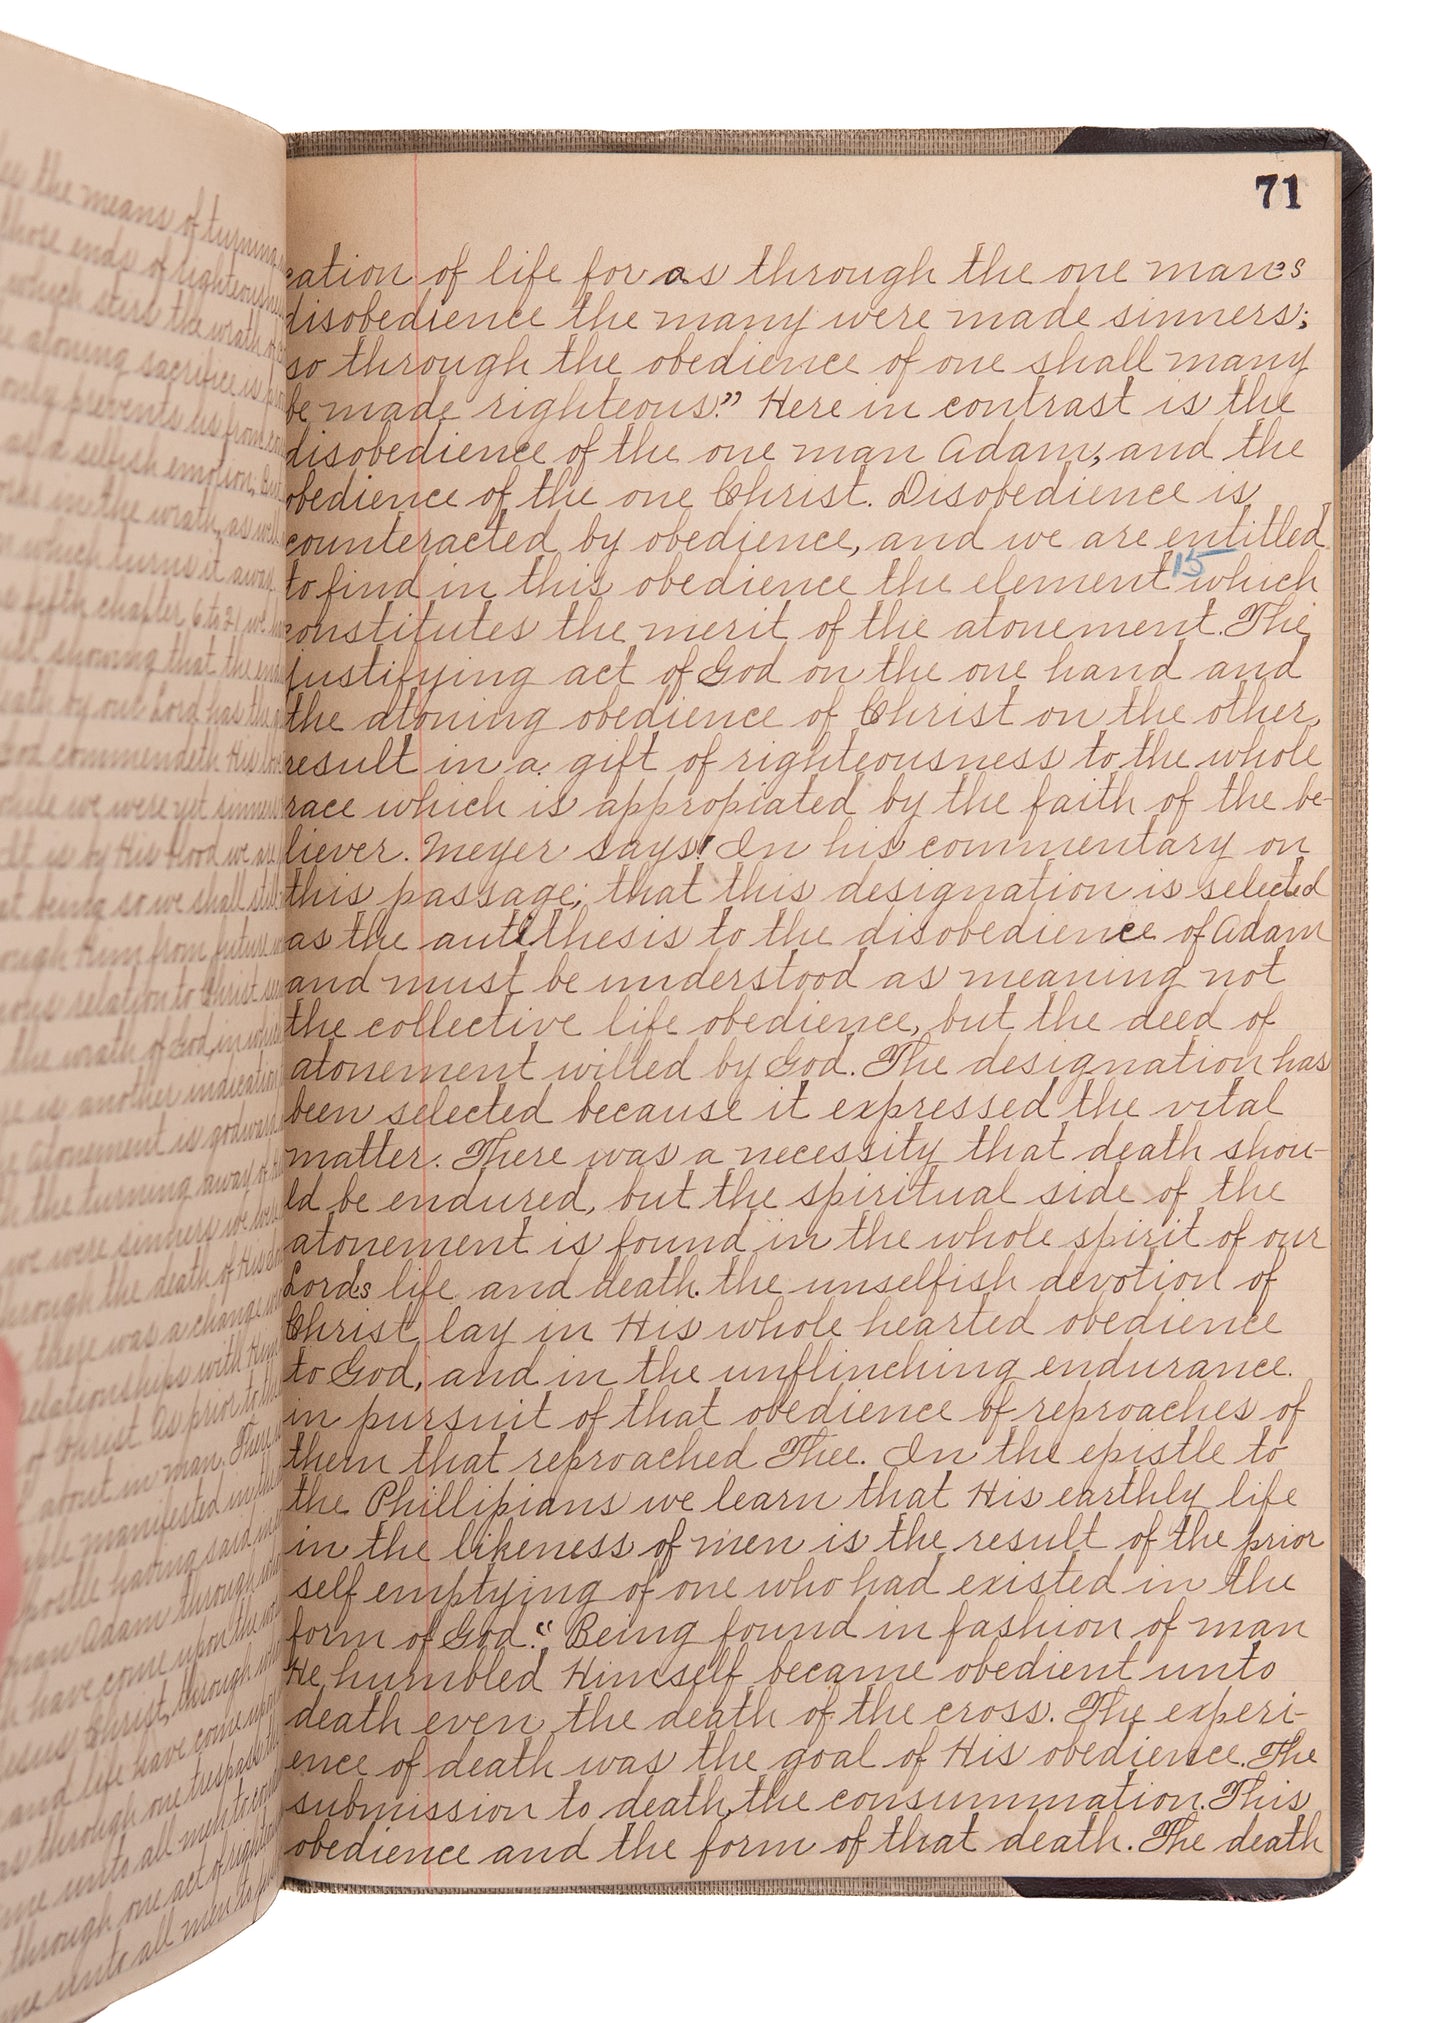 71
cation of life for as through the one mans
disobedience the many were made sinners;
so through the obedience of one shall many
be made righteous." Here in contrast is the
disobedience of the one man Adam, and the
obedience of the one Christ. Disobedience is
counteracted by obedience, and we are entitled
15
to find in this obedience the element which
constitutes the merit of the atonement. The
justifying act of God on the one hand and
the atoning obedience of Christ on the other,
result in a gift of righteousness to the whole
race which is appropiated by the faith of the be-
liever. Meyer says! In his commentary on
this passage; that this designation is selected
as the antithesis to the disobedience of Adam
and must be understood as meaning not
the collective life obedience, but the deed of
atonement willed by God. The designation has
been selected because it expressed the vital
matter. There was a necessity that death shou-
ld be endured, but the spiritual side of the
atonement is found in the whole spirit of our
Lords life and death. the unselfish devotion of
Christ lay in His whole hearted obedience
to God, and in the unflinching endurance.
in pursuit of that obedience of reproaches of
them that reproached Thee. In the epistle to
the Phillipians we learn that His earthly life
in the likeness of men is the result of the prior
self emptying of one who had existed in the
form of God." Being found in fashion of man
He humbled Himself became obedient unto
death even the death of the cross. The experi-
ence of death was the goal of His obedience. The
submission to death, the consummation. This
obedience and the form of that death. The death
the means of turning
those ends of righteousness
which stirs the wrath of
atoning sacrifice is
only prevents us from
as a selfish emotion, But
in the wrath, as well
which turns it away
fifth chapter, 6 to 21, we
showing that the
death by our Lord has the
God commendeth His
while we were yet sinners
is by His blood we are
being so we shall still
through Him from future
relation to Christ
the wrath of God, in which
is another indication
Atonement is godward
the turning away of
we were sinners we were
through the death of His
there was a change
relationships with Him
of Christ. As prior to
about in man. There
manifested in the
Apostle having said
man Adam through
have come upon
Jesus Christ, through
and life have come upon
as through one trespass
unto all men to
through one act of
unto all men to